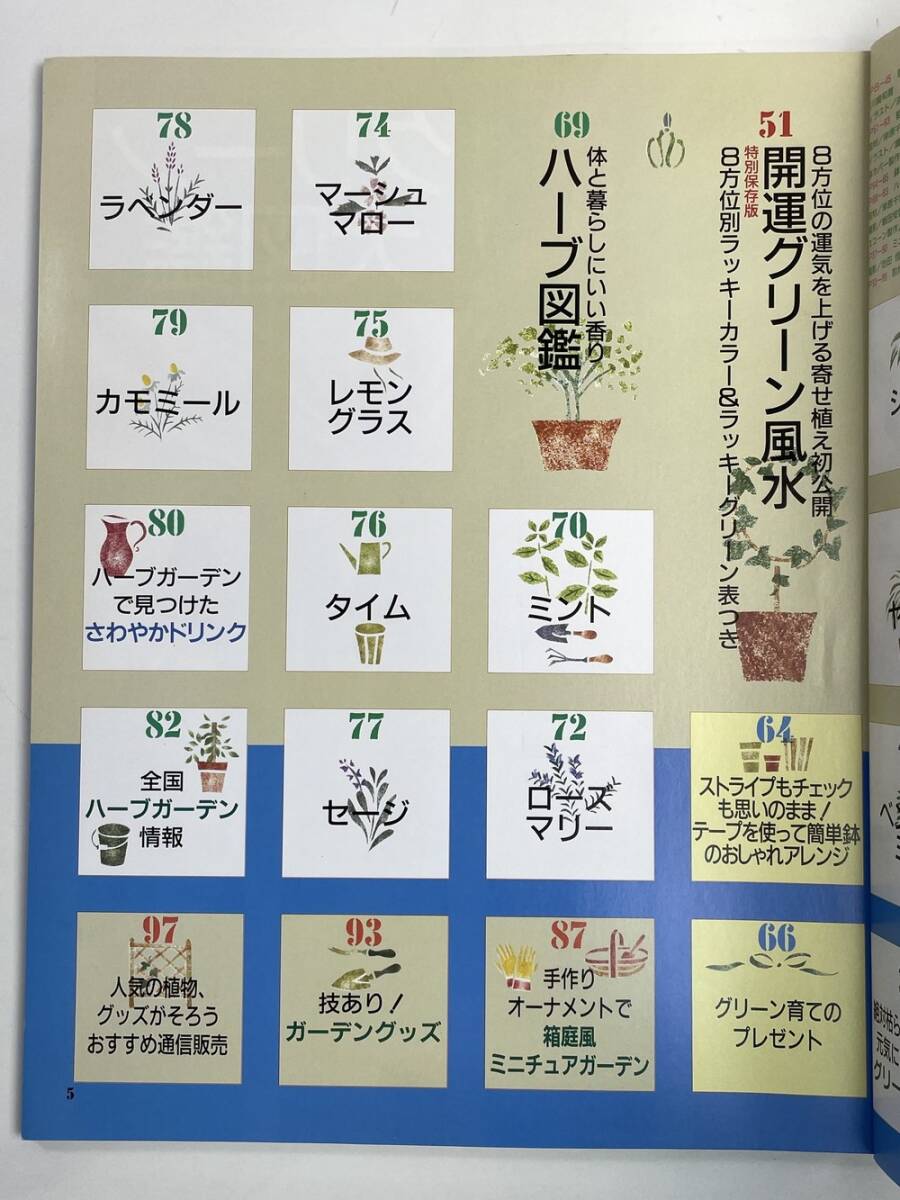 51
8方位の運気を上げる寄せ植え初公開
開運グリーン風水
特別保存版
8方位別ラッキーカラー&ラッキーグリーン表つき
64
ストライプもチェック
も思いのまま!
テープを使って簡単鉢
のおしゃれアレンジ
66
グリーン育ての
プレゼント
69
体と暮らしにいい香り
ハーブ図鑑
70
ミント
72
ローズ
マリー
74
マーシュ
マロー
75
レモン
グラス
76
タイム
77
セージ
78
ラベンダー
79
カモミール
80
ハーブガーデン
で見つけた
さわやかドリンク
82
全国
ハーブガーデン
情報
87
手作り
オーナメントで
箱庭風
ミニチュアガーデン
93
技あり!
ガーデングッズ
97
人気の植物、
グッズがそろう
おすすめ通信販売
5